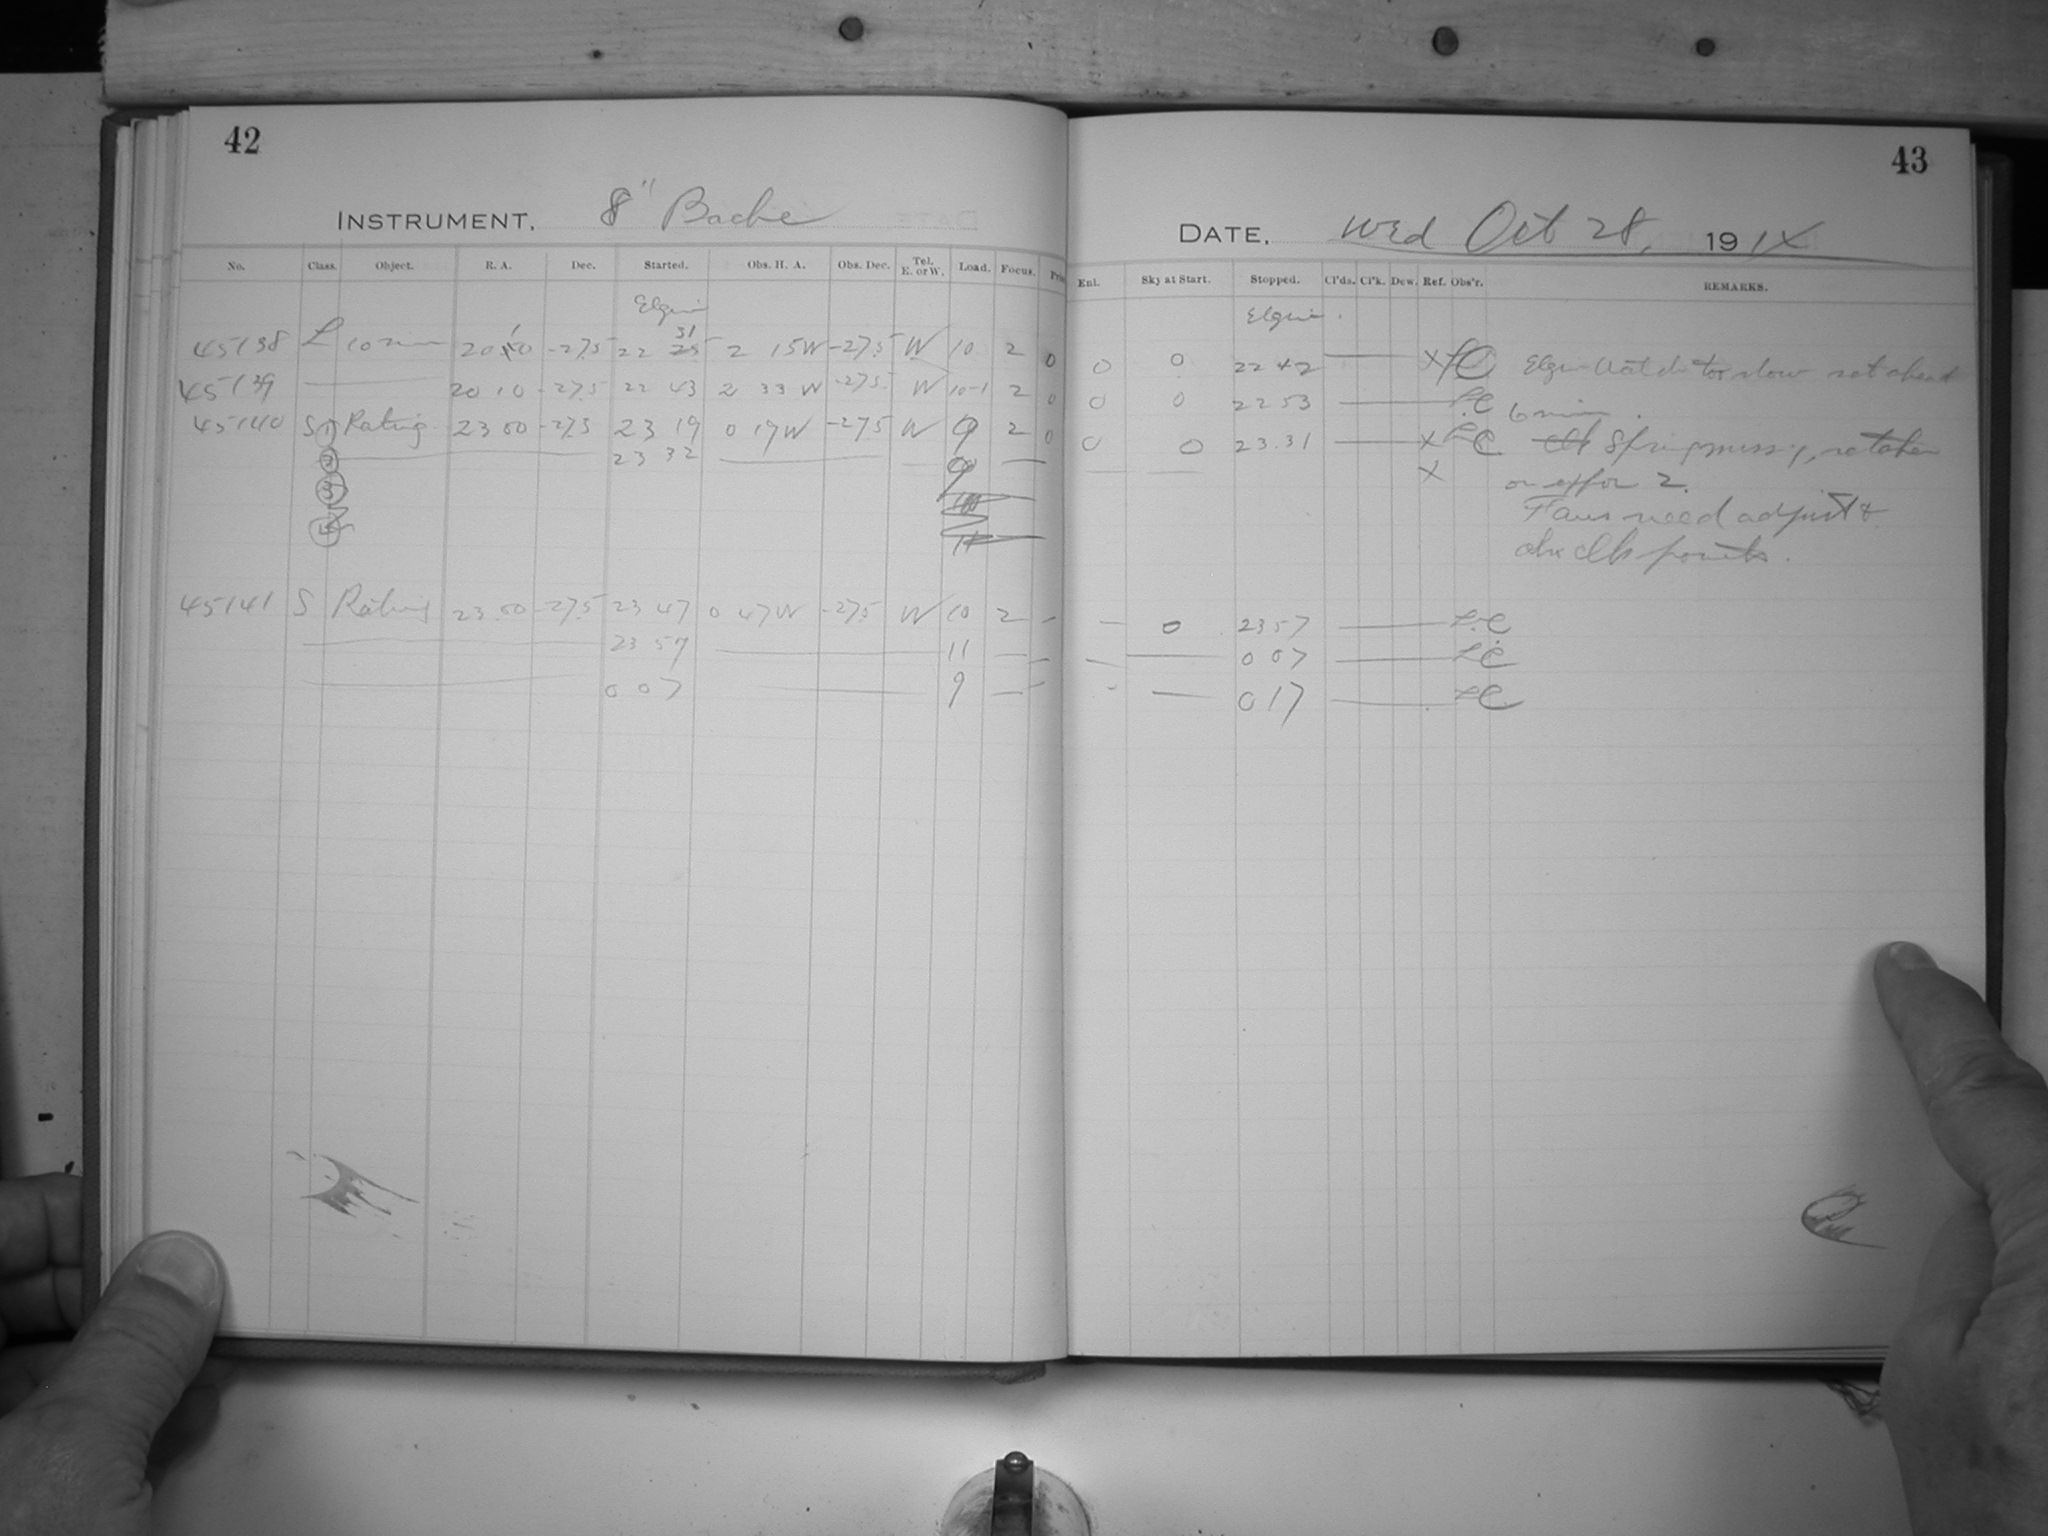 42
INSTRUMENT. 8" Bache
No. Class. Object. R. A. Dec. Started. Obs. H. A. Obs. Dec. Tel. E. or W. Load. Focus.
Elgin
31
45138 L 10 min 20 10 -27.5 22 25 2 15 W -27.5 W 10 2 0
45139 20 10 -27.5 22 43 2 33 W -27.5 W 10-1 2 0
45140 S 1 Rating 23 00 -27.5 23 19 0 19 W -27.5 W 9 2 0
2 23 32
3
4
45141 S Rating 23 00 -27.5 23 47 0 47 W -27.5 W 10 2 -
23 57 11
0 07 9
43
DATE. Wed Oct 28, 19
Enl. Sky at Start. Stopped. Cl'ds. Cl'k. Dew. Ref. Obs'r. REMARKS.
Elgin.
0 0 22 42 X LC Elgin Watch too slow set ahead
0 0 22 53 LC 6 min.
0 0 23.31 X LC
X on 2.
need adjust &
points.
0 23 57 LC
0 07 LC
0 17 LC